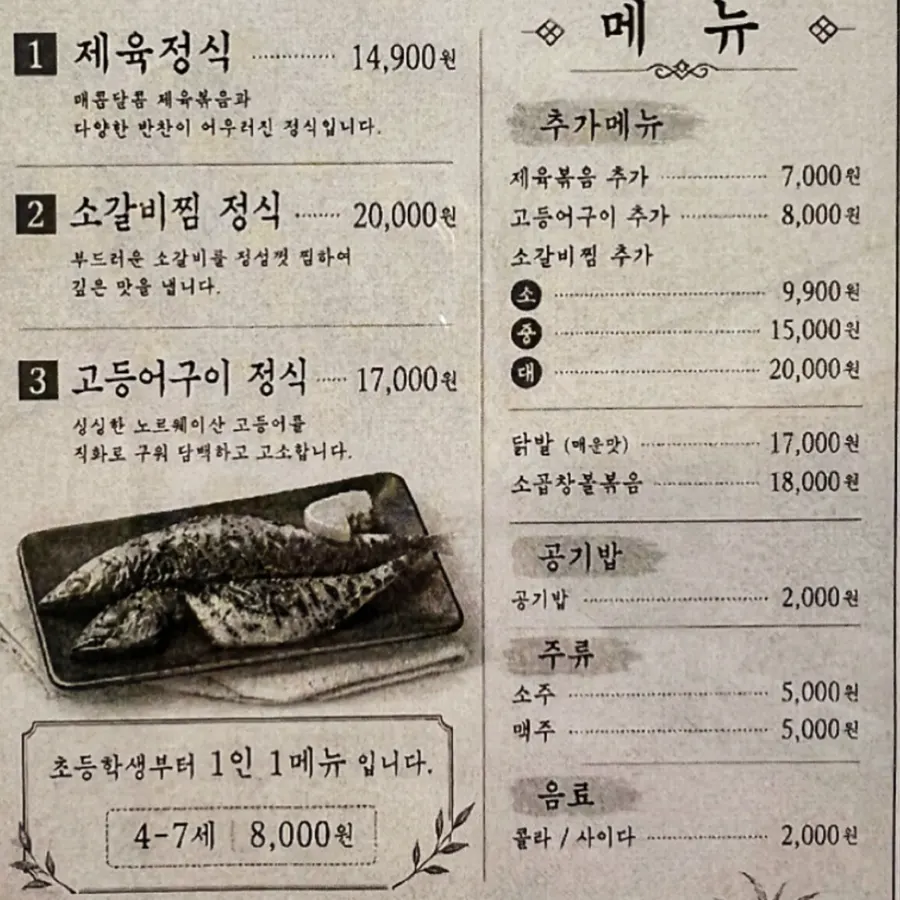 1 제육정식 14,900원
매콤달콤 제육볶음과
다양한 반찬이 어우러진 정식입니다.
2 소갈비찜 정식 20,000원
부드러운 소갈비를 정성껏 찜하여
깊은 맛을 냅니다.
3 고등어구이 정식 17,000원
싱싱한 노르웨이산 고등어를
직화로 구워 담백하고 고소합니다.
초등학생부터 1인 1메뉴 입니다.
4-7세 8,000원
메뉴
추가메뉴
제육볶음 추가 7,000원
고등어구이 추가 8,000원
소갈비찜 추가
소 9,900원
중 15,000원
대 20,000원
닭발 (매운맛) 17,000원
소곱창볶음 18,000원
공기밥
공기밥 2,000원
주류
소주 5,000원
맥주 5,000원
음료
콜라 / 사이다 2,000원